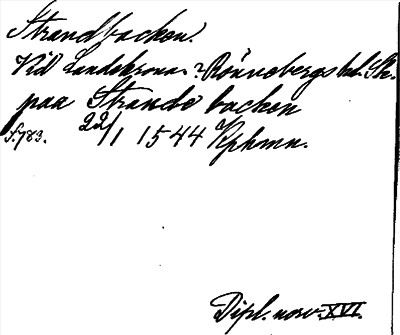 Strandbacken.
Vid Landskrona? Rönnebergs hd. Sk.
paa Strande backen
S. 783. 22/1 1544 Kphmn.
Dipl. norv. XVI.